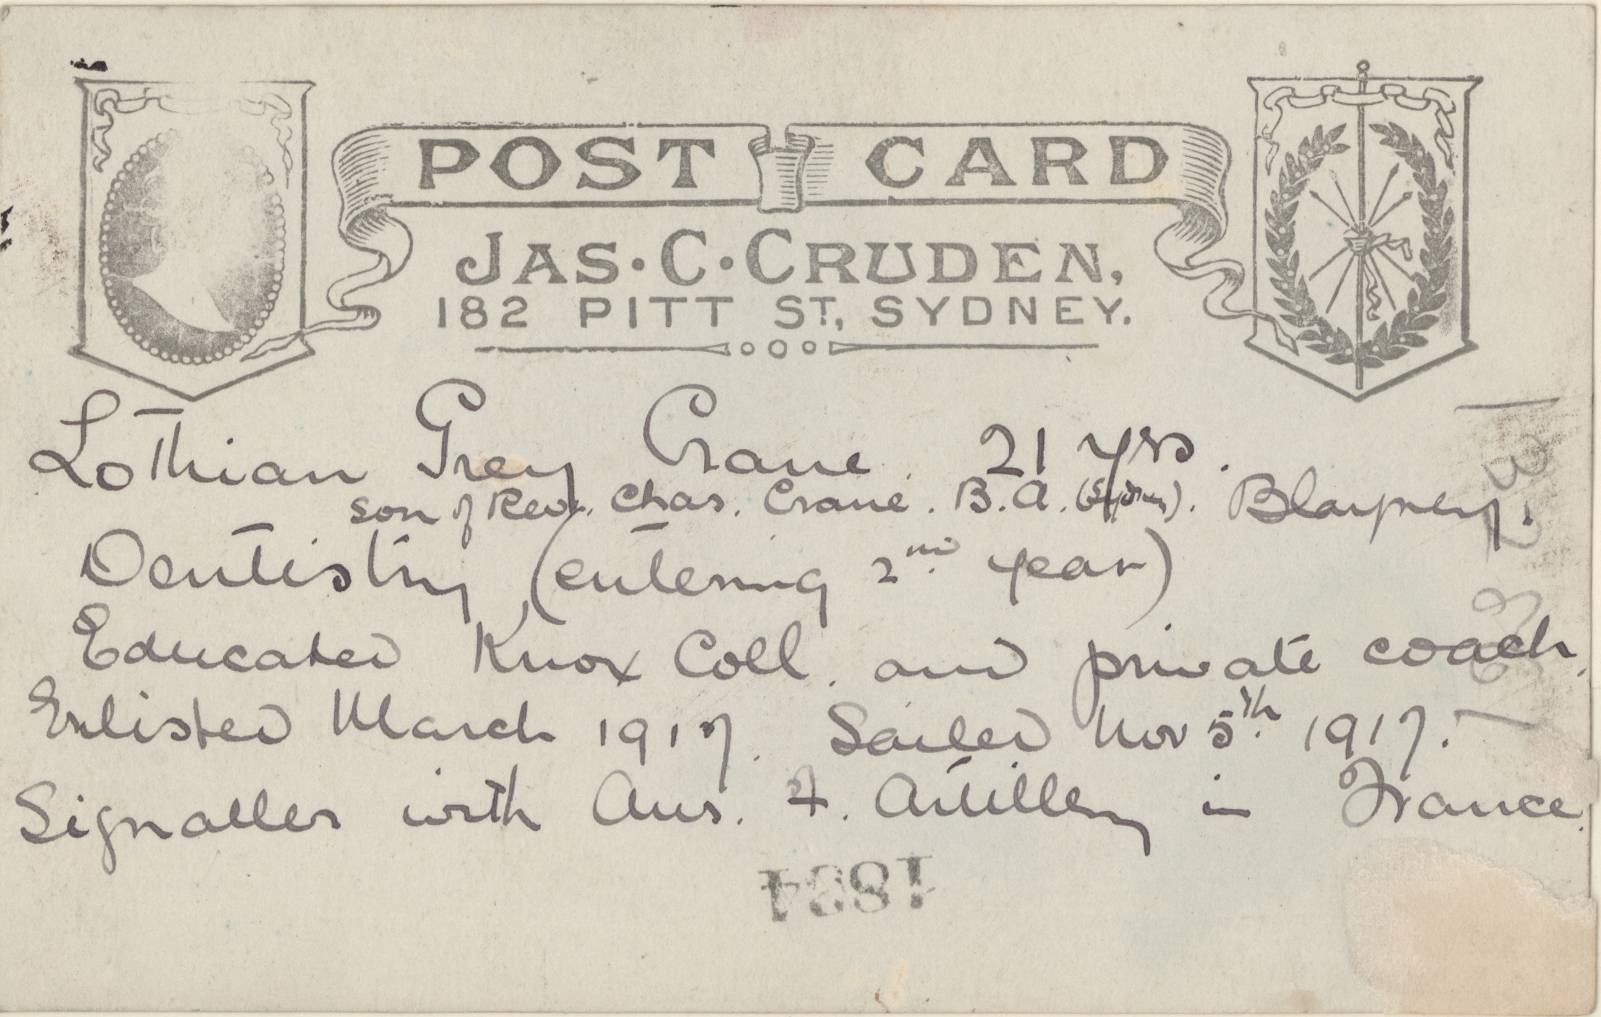 POST CARD
JAS. C. CRUDEN,
182 PITT ST, SYDNEY.
Lothian Grey Crane. 21 yrs.
son of Rev. Chas. Crane. B.A. (Sydney). Blayney.
Dentistry (entering 2nd year)
Educated Knox Coll. and private coach.
Enlisted March 1917. Sailed Nov 5th 1917.
Signaller with Aus. F. Artillery in France.
1834